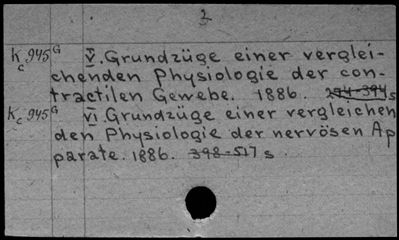 2
Kc 945 G V. Grundzüge einer verglei-
chenden Physiologie der con-
tractilen Gewebe. 1886. 294-394 s
Kc 945 G VI. Grundzüge einer vergleichen
den Physiologie der nervösen Ap
parate. 1886. 398-517 s.